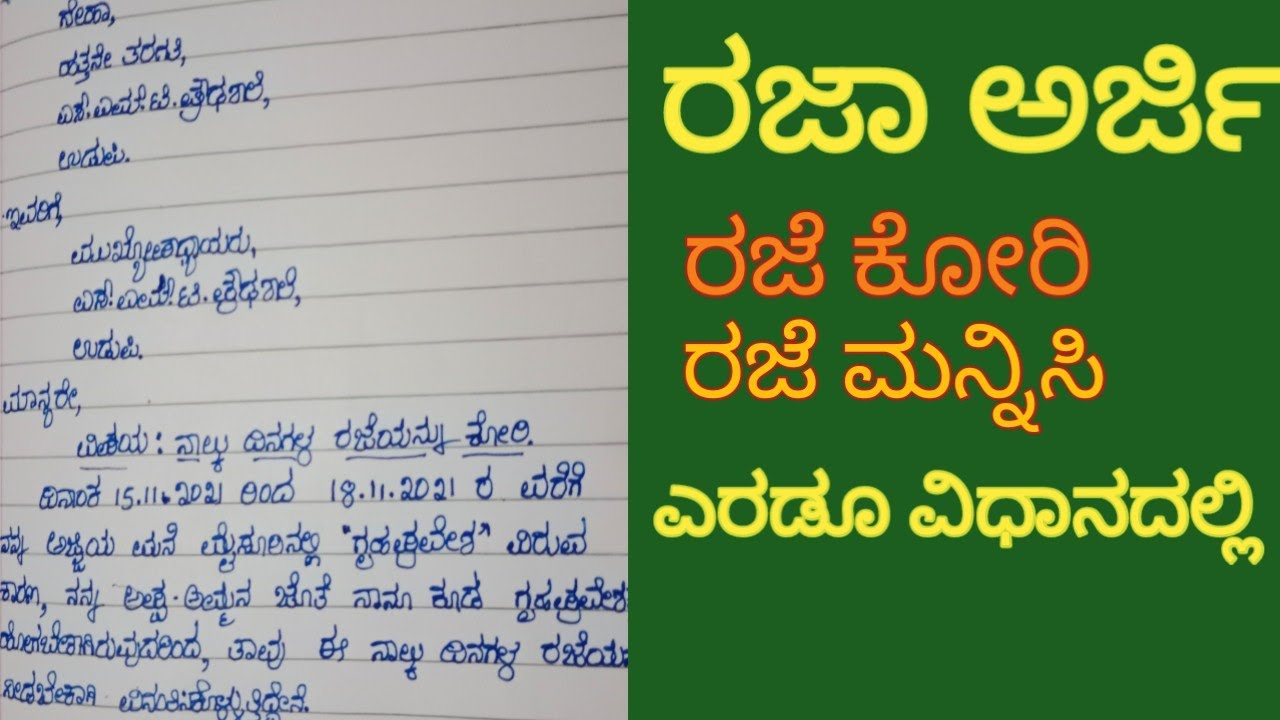 ನೇಹಾ,
ಹತ್ತನೇ ತರಗತಿ,
ಎಸ್.ಎಮ್.ಟಿ. ಪ್ರೌಢಶಾಲೆ,
ಉಡುಪಿ.
ಇವರಿಗೆ,
ಮುಖ್ಯೋಪಾಧ್ಯಾಯರು,
ಎಸ್.ಎಮ್.ಟಿ. ಪ್ರೌಢಶಾಲೆ,
ಉಡುಪಿ.
ಮಾನ್ಯರೇ,
ವಿಷಯ: ನಾಲ್ಕು ದಿನಗಳ ರಜೆಯನ್ನು ಕೋರಿ.
ದಿನಾಂಕ 15.11.2021 ರಿಂದ 18.11.2021 ರ ವರೆಗೆ
ನನ್ನ ಅಜ್ಜಿಯ ಮನೆ ಮೈಸೂರಿನಲ್ಲಿ "ಗೃಹಪ್ರವೇಶ" ವಿರುವ
ಕಾರಣ, ನನ್ನ ಅಪ್ಪ-ಅಮ್ಮನ ಜೊತೆ ನಾನೂ ಕೂಡ ಗೃಹಪ್ರವೇಶ
ಹೋಗಬೇಕಾಗಿರುವುದರಿಂದ, ತಾವು ಈ ನಾಲ್ಕು ದಿನಗಳ ರಜೆಯ
ನೀಡಬೇಕಾಗಿ ವಿನಂತಿಸಿಕೊಳ್ಳುತ್ತಿದ್ದೇನೆ.
ರಜಾ ಅರ್ಜಿ
ರಜೆ ಕೋರಿ
ರಜೆ ಮನ್ನಿಸಿ
ಎರಡೂ ವಿಧಾನದಲ್ಲಿ